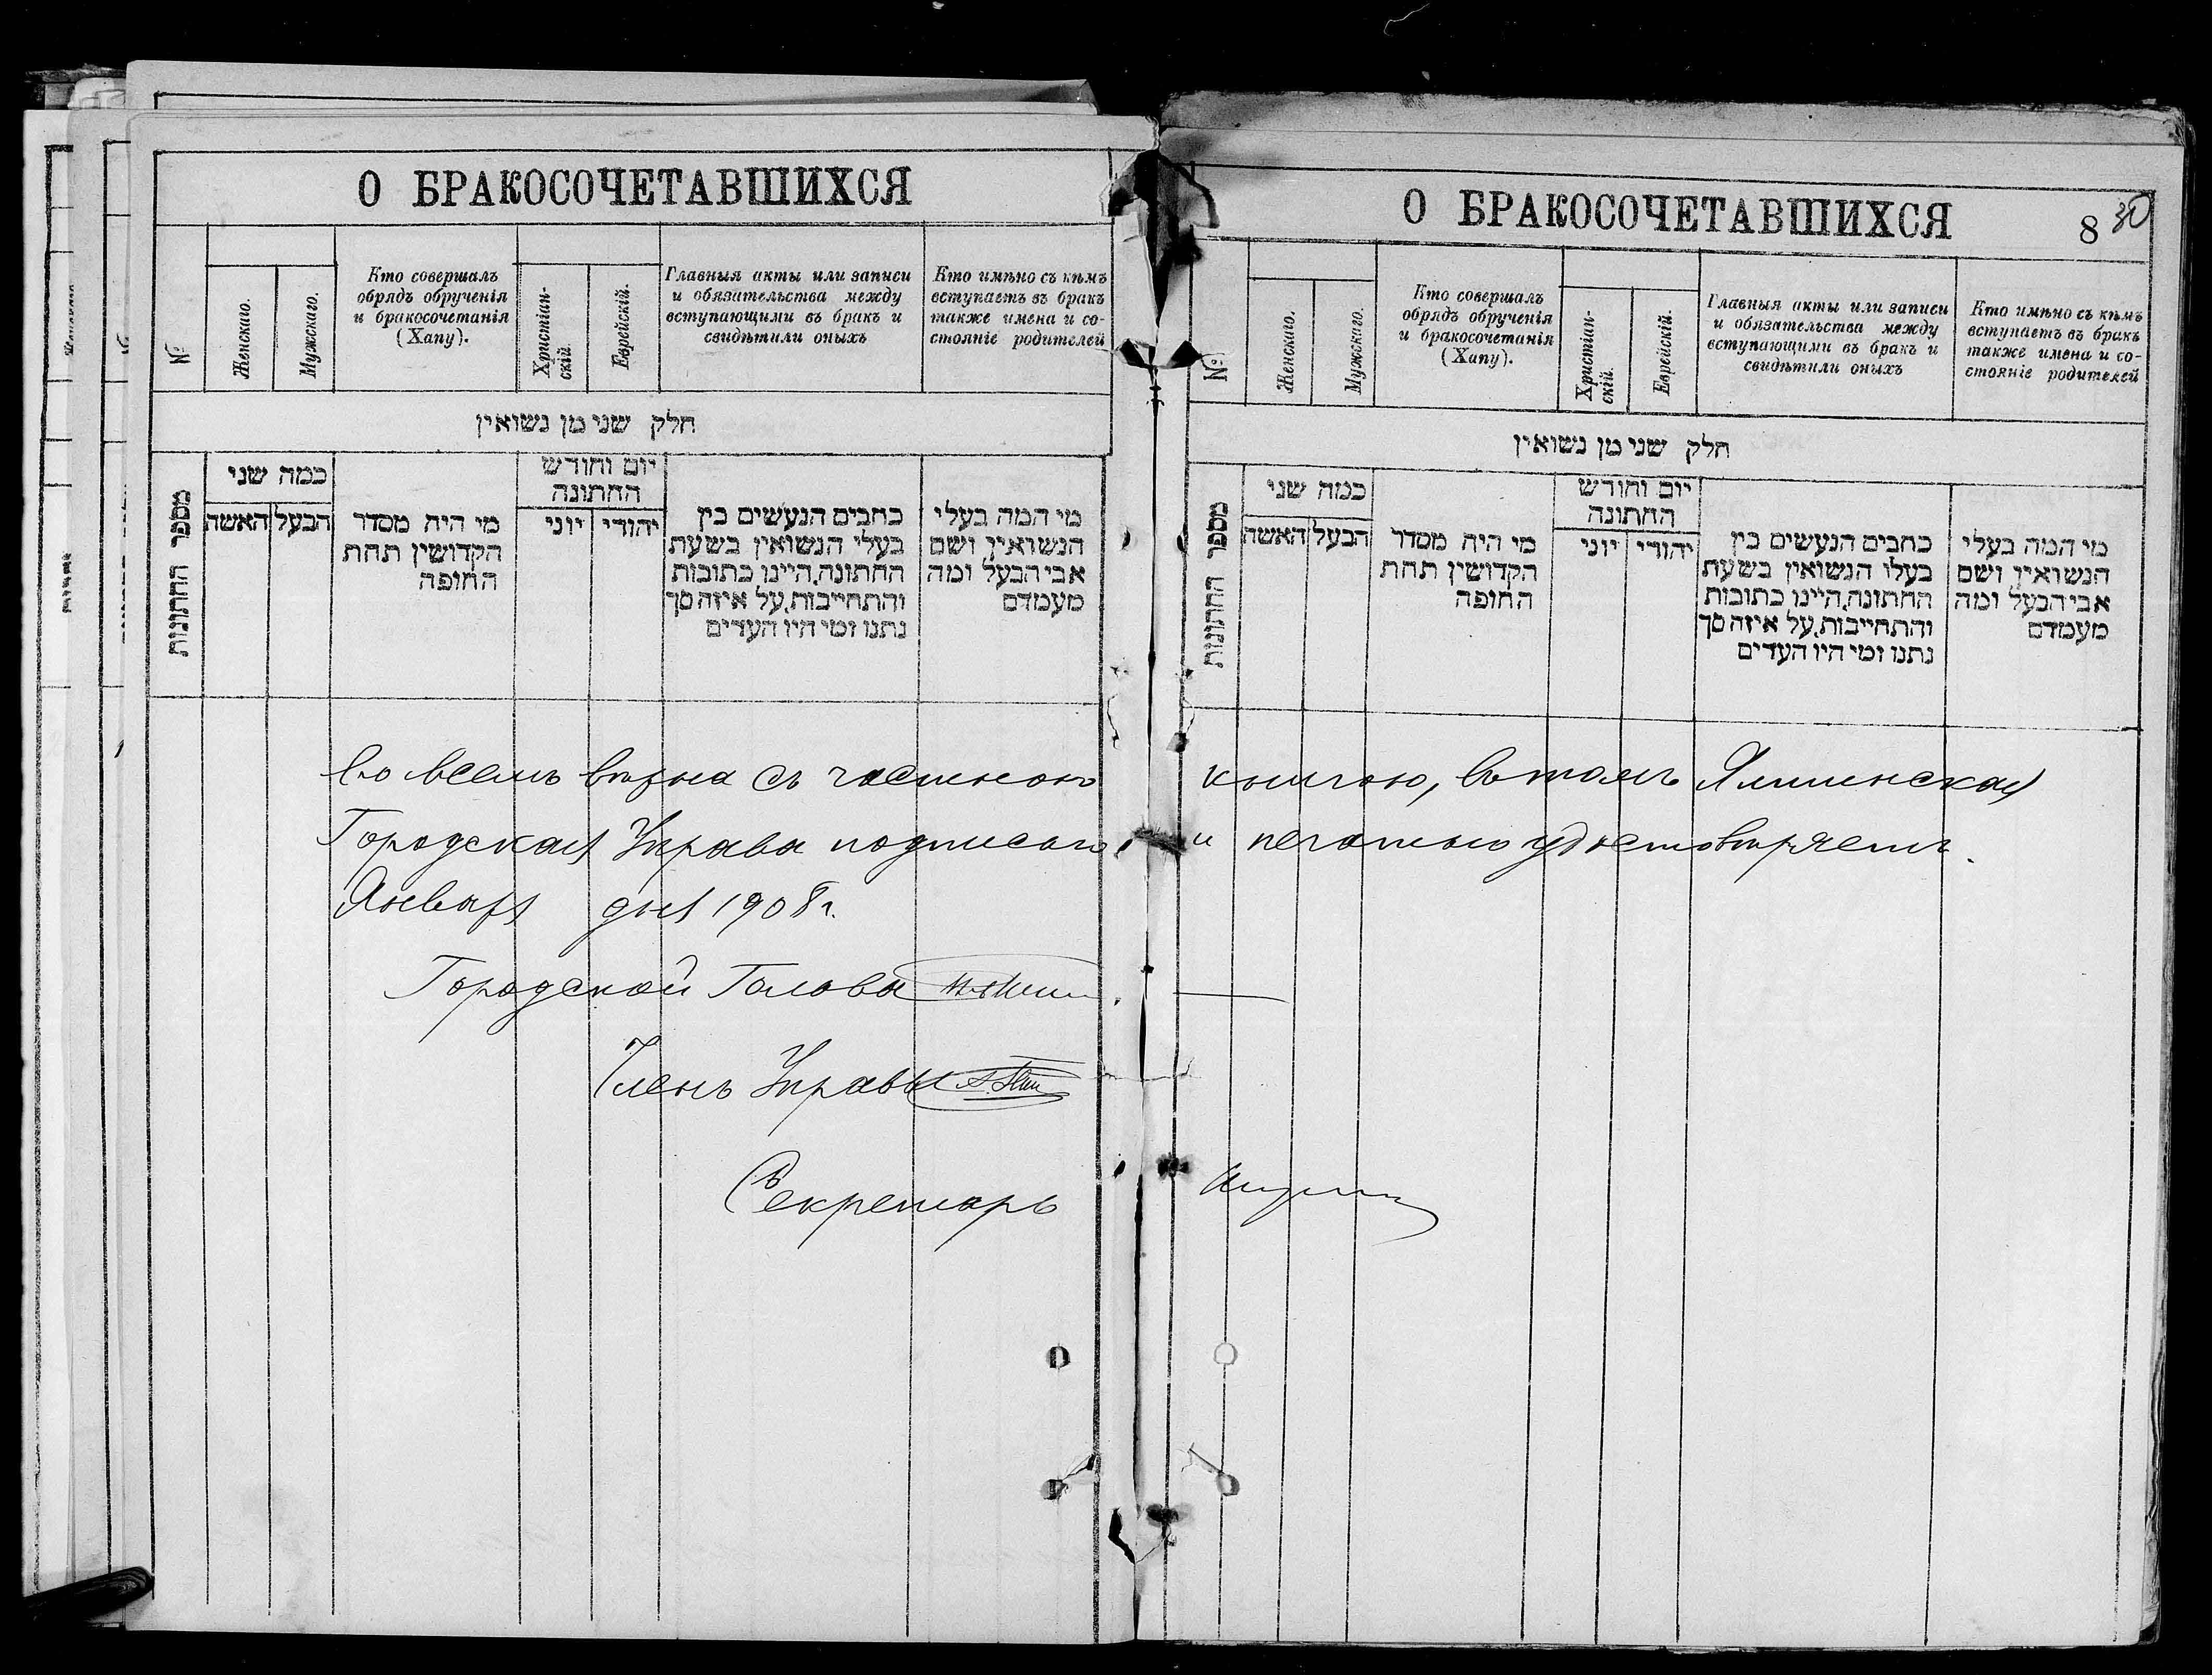 О БРАКОСОЧЕТАВШИХСЯ
№
Женскаго.
Мужскаго.
Кто совершалъ
обрядъ обрученія
и бракосочетанія
(Хапу).
Христіан-
скій.
Еврейскій.
Главныя акты или записи
и обязательства между
вступающими въ бракъ и
свидѣтили оныхъ
Кто имѣно съ кѣмъ
вступаетъ въ бракъ
также имена и со-
стояніе родителей
חלק שני מן נשואין
מספר החתונות
כמה שני
הבעל
האשה
מי היה מסדר
הקדושין תחת
החופה
יום וחודש
החתונה
יהודי
יוני
כתבים הנעשים בין
בעלי הנשואין בשעת
החתונה, היינו כתובות
והתחייבות, על איזה סך
נתנו ומי היו העדים
מי המה בעלי
הנשואין ושם
אבי הבעל ומה
מעמדם
во всемъ вѣрна съ частною
Городская Управа подписью
Января дня 1908 г.
Городской Голова
Членъ Управы
Секретарь
О БРАКОСОЧЕТАВШИХСЯ
8
30
№
Женскаго.
Мужскаго.
Кто совершалъ
обрядъ обрученія
и бракосочетанія
(Хапу).
Христіан-
скій.
Еврейскій.
Главныя акты или записи
и обязательства между
вступающими въ бракъ и
свидѣтили оныхъ
Кто имѣно съ кѣмъ
вступаетъ въ бракъ
также имена и со-
стояніе родителей
חלק שני מן נשואין
מספר החתונות
כמה שני
הבעל
האשה
מי היה מסדר
הקדושין תחת
החופה
יום וחודש
החתונה
יהודי
יוני
כתבים הנעשים בין
בעלו הנשואין בשעת
החתונה, היינו כתובות
והתחייבות, על איזה סך
נתנו ומי היו העדים
מי המה בעלי
הנשואין ושם
אבי הבעל ומה
מעמדם
книгою, въ томъ
и печатью удостовѣряетъ.